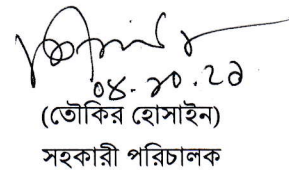 ০৪.১০.২১
(তৌকির হোসাইন)
সহকারী পরিচালক